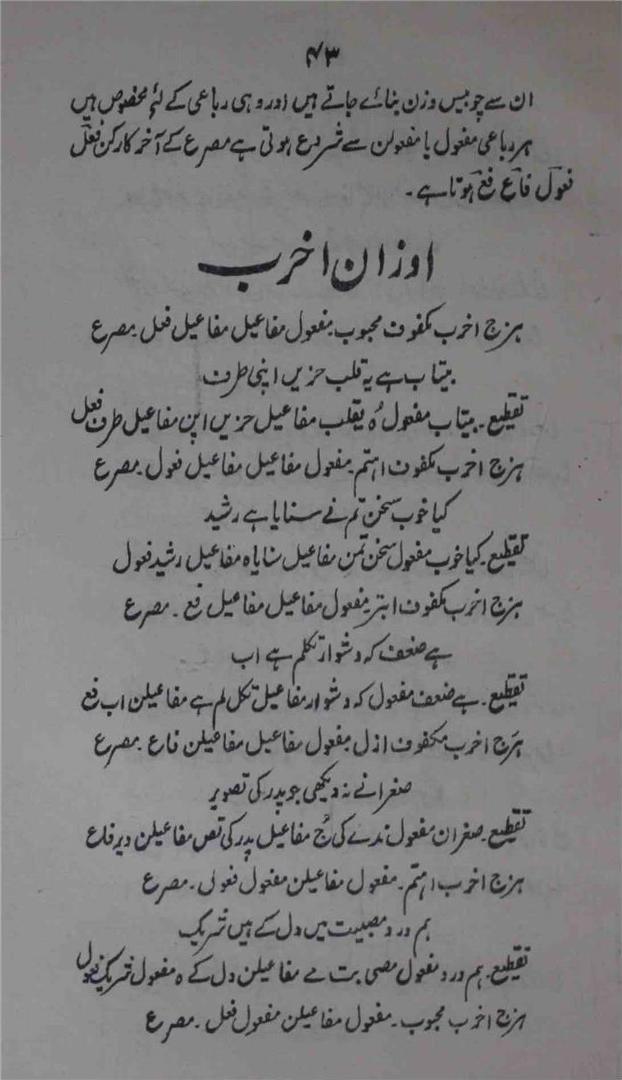 ۴۳
ان سے چوبیس وزن بنائے جاتے ہیں اور وہی رباعی کے لئے مخصوص ہیں
ہر رباعی مفعول یا مفعولن سے شروع ہوتی ہے مصرع کے آخر کا رکن فعل
فعول فاع فع ہوتا ہے۔
اوزان اخرب
ہزج اخرب مکفوف مجبوب مفعول مفاعیل مفاعیل فعل۔ مصرع
بیتاب ہے یہ قلب حزیں اپنی طرف
تقطیع۔ بیتاب مفعول ہ یقلب مفاعیل حزیں اپن مفاعیل طرف فعل
ہزج اخرب مکفوف اہتم۔ مفعول مفاعیل مفاعیل فعول۔ مصرع
کیا خوب سخن تم نے سنایا ہے رشید
تقطیع۔ کیا خوب مفعول سخن تمن مفاعیل سنایاہ مفاعیل رشید فعول
ہزج اخرب مکفوف ابتر۔ مفعول مفاعیل مفاعیل فع۔ مصرع
ہے ضعف کہ دشوار تکلم ہے اب
تقطیع۔ ہے ضعف مفعول کہ دشوار مفاعیل تکل لم ہے مفاعیلن اب فع
ہزج اخرب مکفوف ازل۔ مفعول مفاعیل مفاعیلن فاع۔ مصرع
صغرا نے نہ دیکھی جو پدر کی تصویر
تقطیع۔ صغران مفعول ندے کی جُ مفاعیل پدر کی تص مفاعیلن ویر فاع
ہزج اخرب اہتم۔ مفعول مفاعیلن مفعول فعول۔ مصرع
ہم درد مصیبت میں دل کے ہیں شریک
تقطیع۔ ہم درد مفعول مصی بت مے مفاعیلن دل کے ہ مفعول شریک فعول
ہزج اخرب مجبوب۔ مفعول مفاعیلن مفعول فعل۔ مصرع